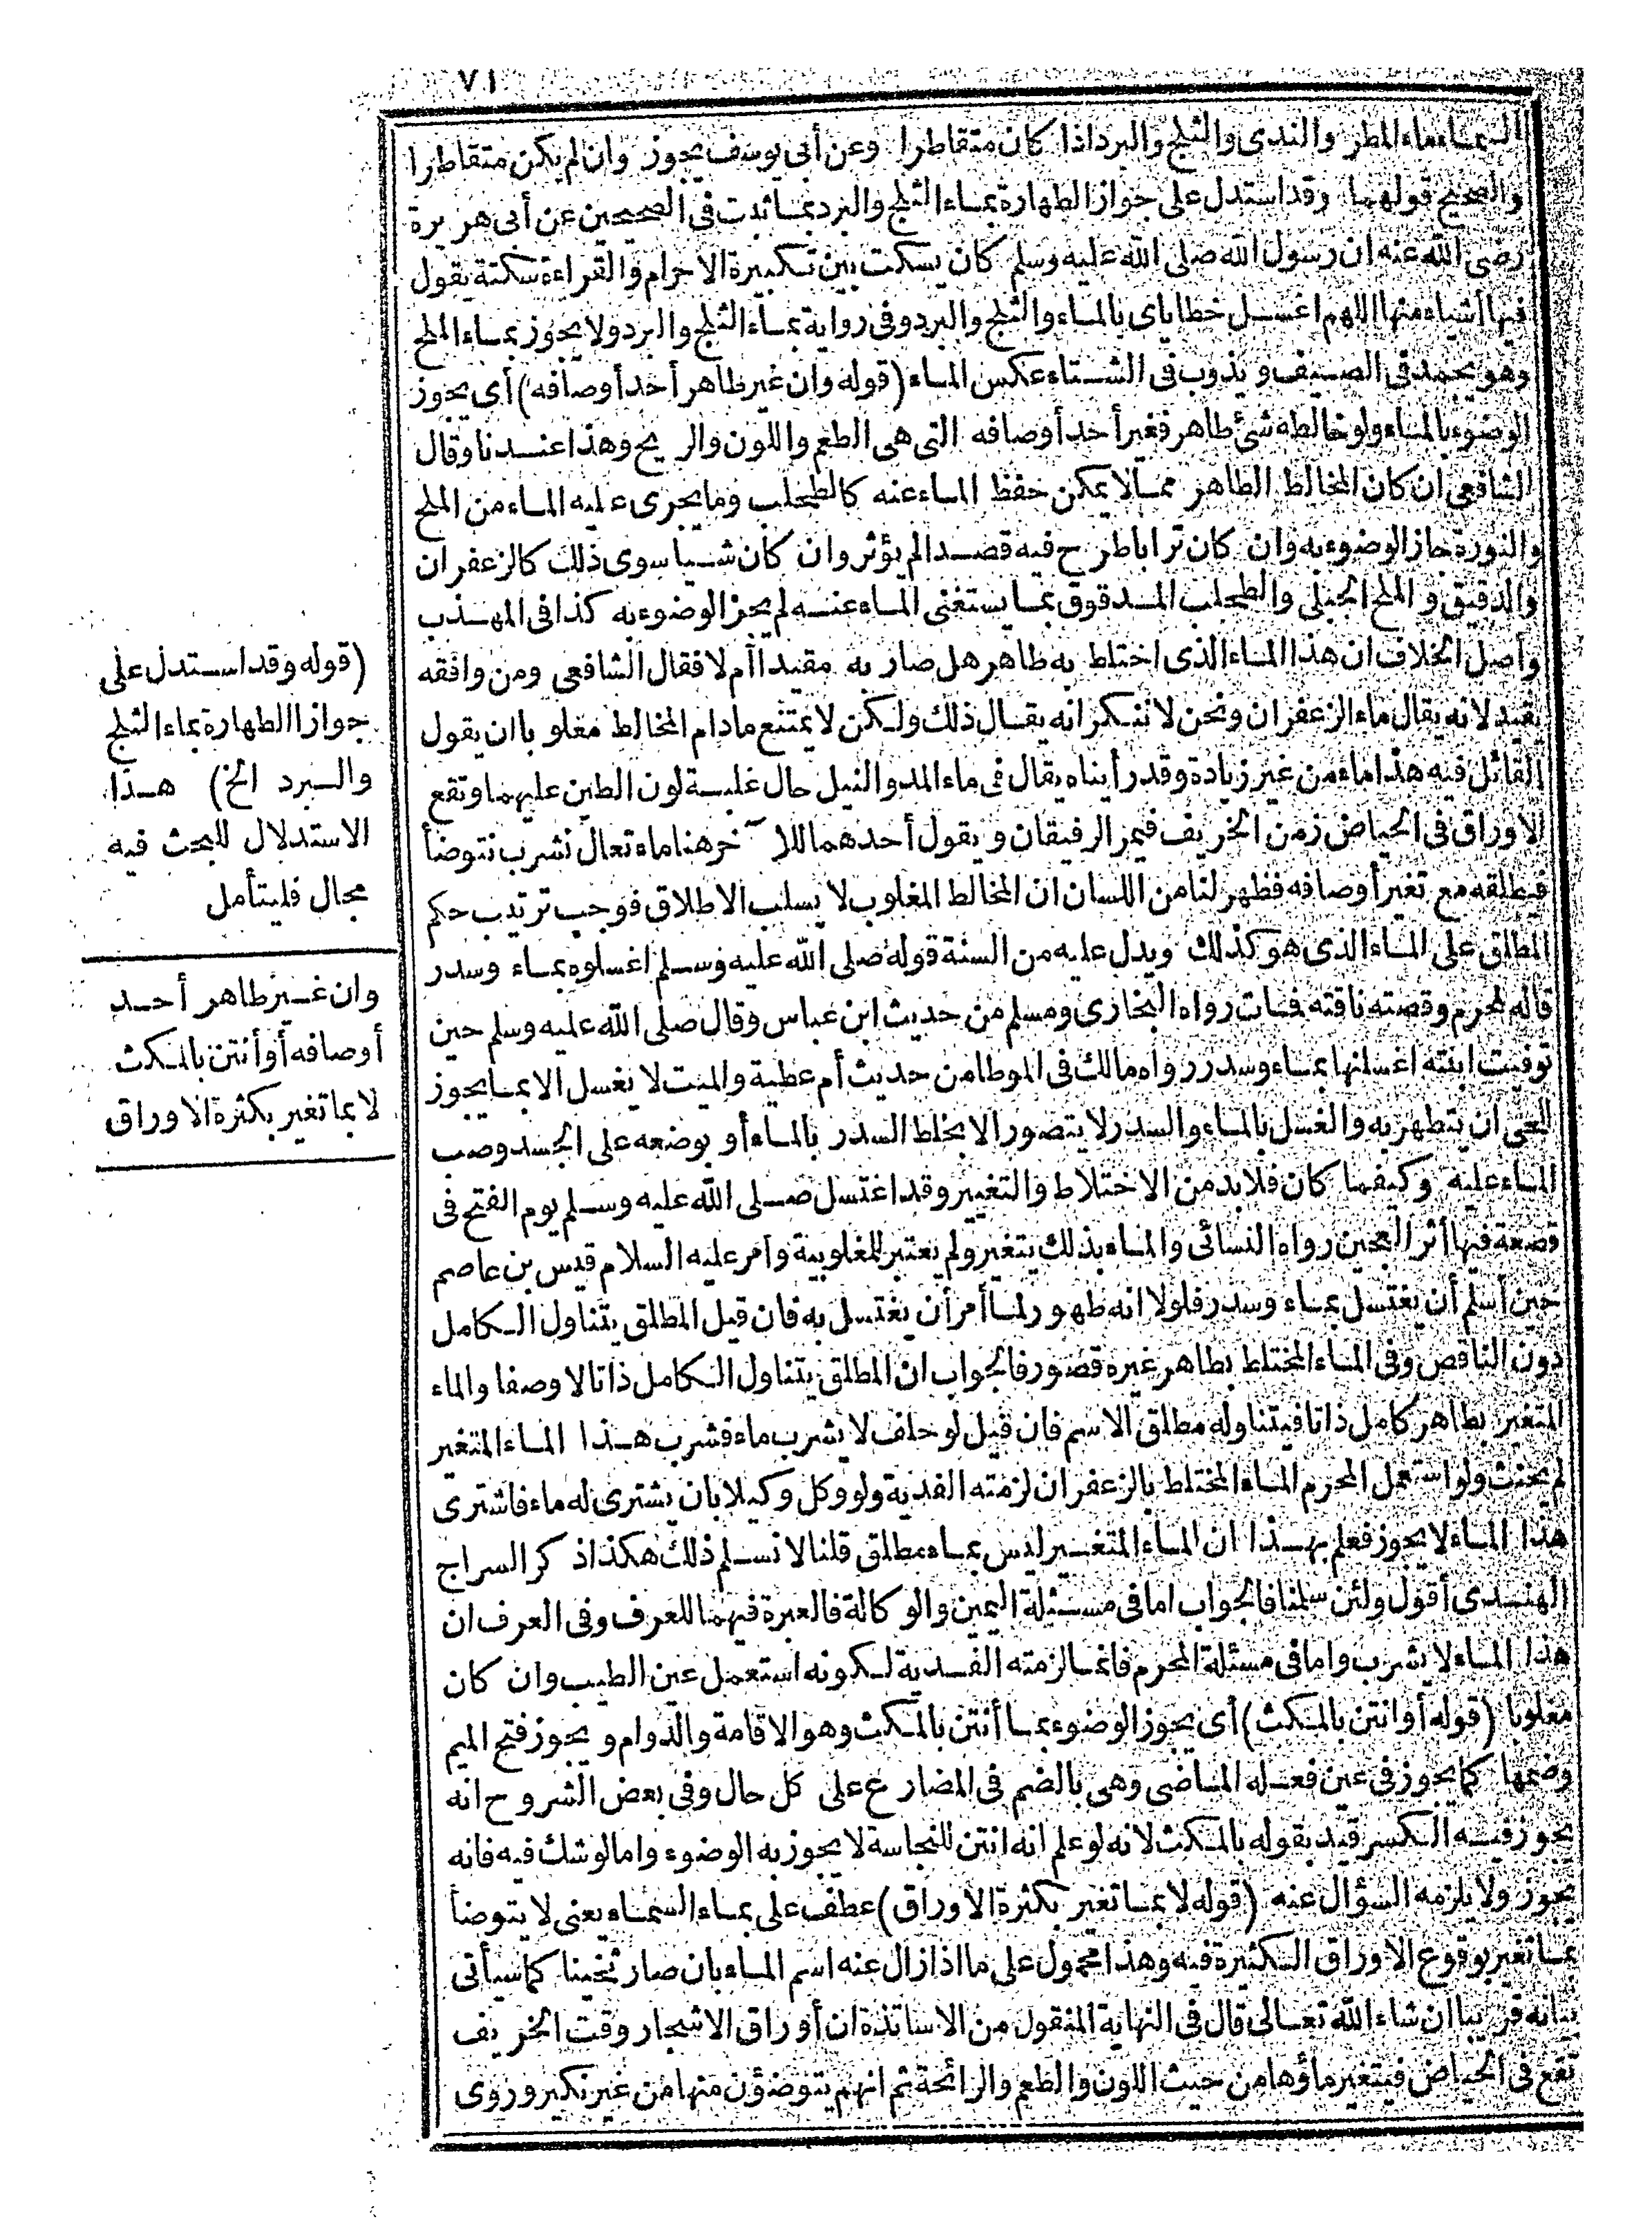 ٧١
السماء ماء المطر والندى والثلج والبرد اذا كان متقاطرا وعن أبى يوسف يجوز وان لم يكن متقاطرا
والصحيح قولهما وقد استدل على جواز الطهارة بماء الثلج والبرد بما ثبت فى الصحيحين عن أبى هريرة
رضى الله عنه ان رسول الله صلى الله عليه وسلم كان يسكت بين تكبيرة الاحرام والقراءة سكتة يقول
فيها أشياء منها اللهم اغسل خطاياى بالماء والثلج والبرد وفى رواية بماء الثلج والبرد ولا يجوز بماء الملح
وهو يجمد فى الصيف ويذوب فى الشتاء عكس الماء (قوله وان غير طاهر أحد أوصافه) أى يجوز
الوضوء بالماء ولو خالطه شئ طاهر فغير أحد أوصافه التى هى الطعم واللون والريح وهذا عندنا وقال
الشافعى ان كان المخالط الطاهر مما لا يمكن حفظ الماء عنه كالطحلب وما يجرى عليه الماء من الملح
والنورة جاز الوضوء به وان كان ترابا طرح فيه قصدا لم يؤثر وان كان شيأ سوى ذلك كالزعفران
والدقيق والملح الجبلى والطحلب المدقوق مما يستغنى الماء عنه لم يجز الوضوء به كذا فى المهذب
وأصل الخلاف ان هذا الماء الذى اختلط به طاهر هل صار به مقيدا أم لا فقال الشافعى ومن وافقه
تقيد لانه يقال ماء الزعفران ونحن لا ننكر انه يقال ذلك ولكن لا يمتنع مادام المخالط مغلوبا ان يقول
القائل فيه هذا ماء من غير زيادة وقد رأيناه يقال فى ماء المد والنيل حال غلبة لون الطين عليهما وتقع
الاوراق فى الحياض زمن الخريف فيمر الرفيقان ويقول أحدهما للآخر هنا ماء تعال نشرب نتوضأ
فيطلقه مع تغير أوصافه فظهر لنا من اللسان ان المخالط المغلوب لا يسلب الاطلاق فوجب ترتيب حكم
المطلق على الماء الذى هو كذلك ويدل عليه من السنة قوله صلى الله عليه وسلم اغسلوه بماء وسدر
قاله لمحرم وقصته ناقته فمات رواه البخارى ومسلم من حديث ابن عباس وقال صلى الله عليه وسلم حين
توفيت ابنته اغسلنها بماء وسدر رواه مالك فى الموطا من حديث أم عطية والميت لا يغسل الا بما يجوز
للحى ان يتطهر به والغسل بالماء والسدر لا يتصور الا بخلط السدر بالماء أو بوضعه على الجسد وصب
الماء عليه وكيفما كان فلا بد من الاختلاط والتغيير وقد اغتسل صلى الله عليه وسلم يوم الفتح فى
قصعة فيها أثر العجين رواه النسائى والماء بذلك يتغير ولم يعتبر للمغلوبية وأمر عليه السلام قيس بن عاصم
حين أسلم أن يغتسل بماء وسدر فلولا انه طهور لما أمر أن يغتسل به فان قيل المطلق يتناول الكامل
دون الناقص وفى الماء المختلط بطاهر غيره قصور فالجواب ان المطلق يتناول الكامل ذاتا لا وصفا والماء
المتغير بطاهر كامل ذاتا فيتناوله مطلق الاسم فان قيل لو حلف لا يشرب ماء فشرب هذا الماء المتغير
لم يحنث ولو استعمل المحرم الماء المختلط بالزعفران لزمته الفدية ولو وكل وكيلا بان يشترى له ماء فاشترى
هذا الماء لا يجوز فعلم بهذا ان الماء المتغير ليس بماء مطلق قلنا لا نسلم ذلك هكذا ذكر السراج
الهندى أقول ولئن سلمنا فالجواب اما فى مسئلة اليمين والوكالة فالعبرة فيهما للعرف وفى العرف ان
هذا الماء لا يشرب واما فى مسئلة المحرم فانما لزمته الفدية لكونه استعمل عين الطيب وان كان
مغلوبا (قوله أو انتن بالمكث) أى يجوز الوضوء بما أنتن بالمكث وهو الاقامة والدوام ويجوز فتح الميم
وضمها كما يجوز فى عين فعله الماضى وهى بالضم فى المضارع على كل حال وفى بعض الشروح انه
يجوز فيه الكسر قيد بقوله بالمكث لانه لو علم انه انتن للنجاسة لا يجوز به الوضوء واما لو شك فيه فانه
يجوز ولا يلزمه السؤال عنه (قوله لا بما تغير بكثرة الاوراق) عطف على بماء السماء يعنى لا يتوضأ
بما تغير بوقوع الاوراق الكثيرة فيه وهذا محمول على ما اذا زال عنه اسم الماء بان صار ثخينا كما سيأتى
بيانه قريبا ان شاء الله تعالى قال فى النهاية المنقول من الاساتذة ان أوراق الاشجار وقت الخريف
تقع فى الحياض فيتغير ماؤها من حيث اللون والطعم والرائحة ثم انهم يتوضؤن منها من غير نكير وروى
(قوله وقد استدل على
جواز الطهارة بماء الثلج
والبرد الخ) هذا
الاستدلال للبحث فيه
مجال فليتأمل
وان غير طاهر أحد
أوصافه أو أنتن بالمكث
لا بما تغير بكثرة الاوراق